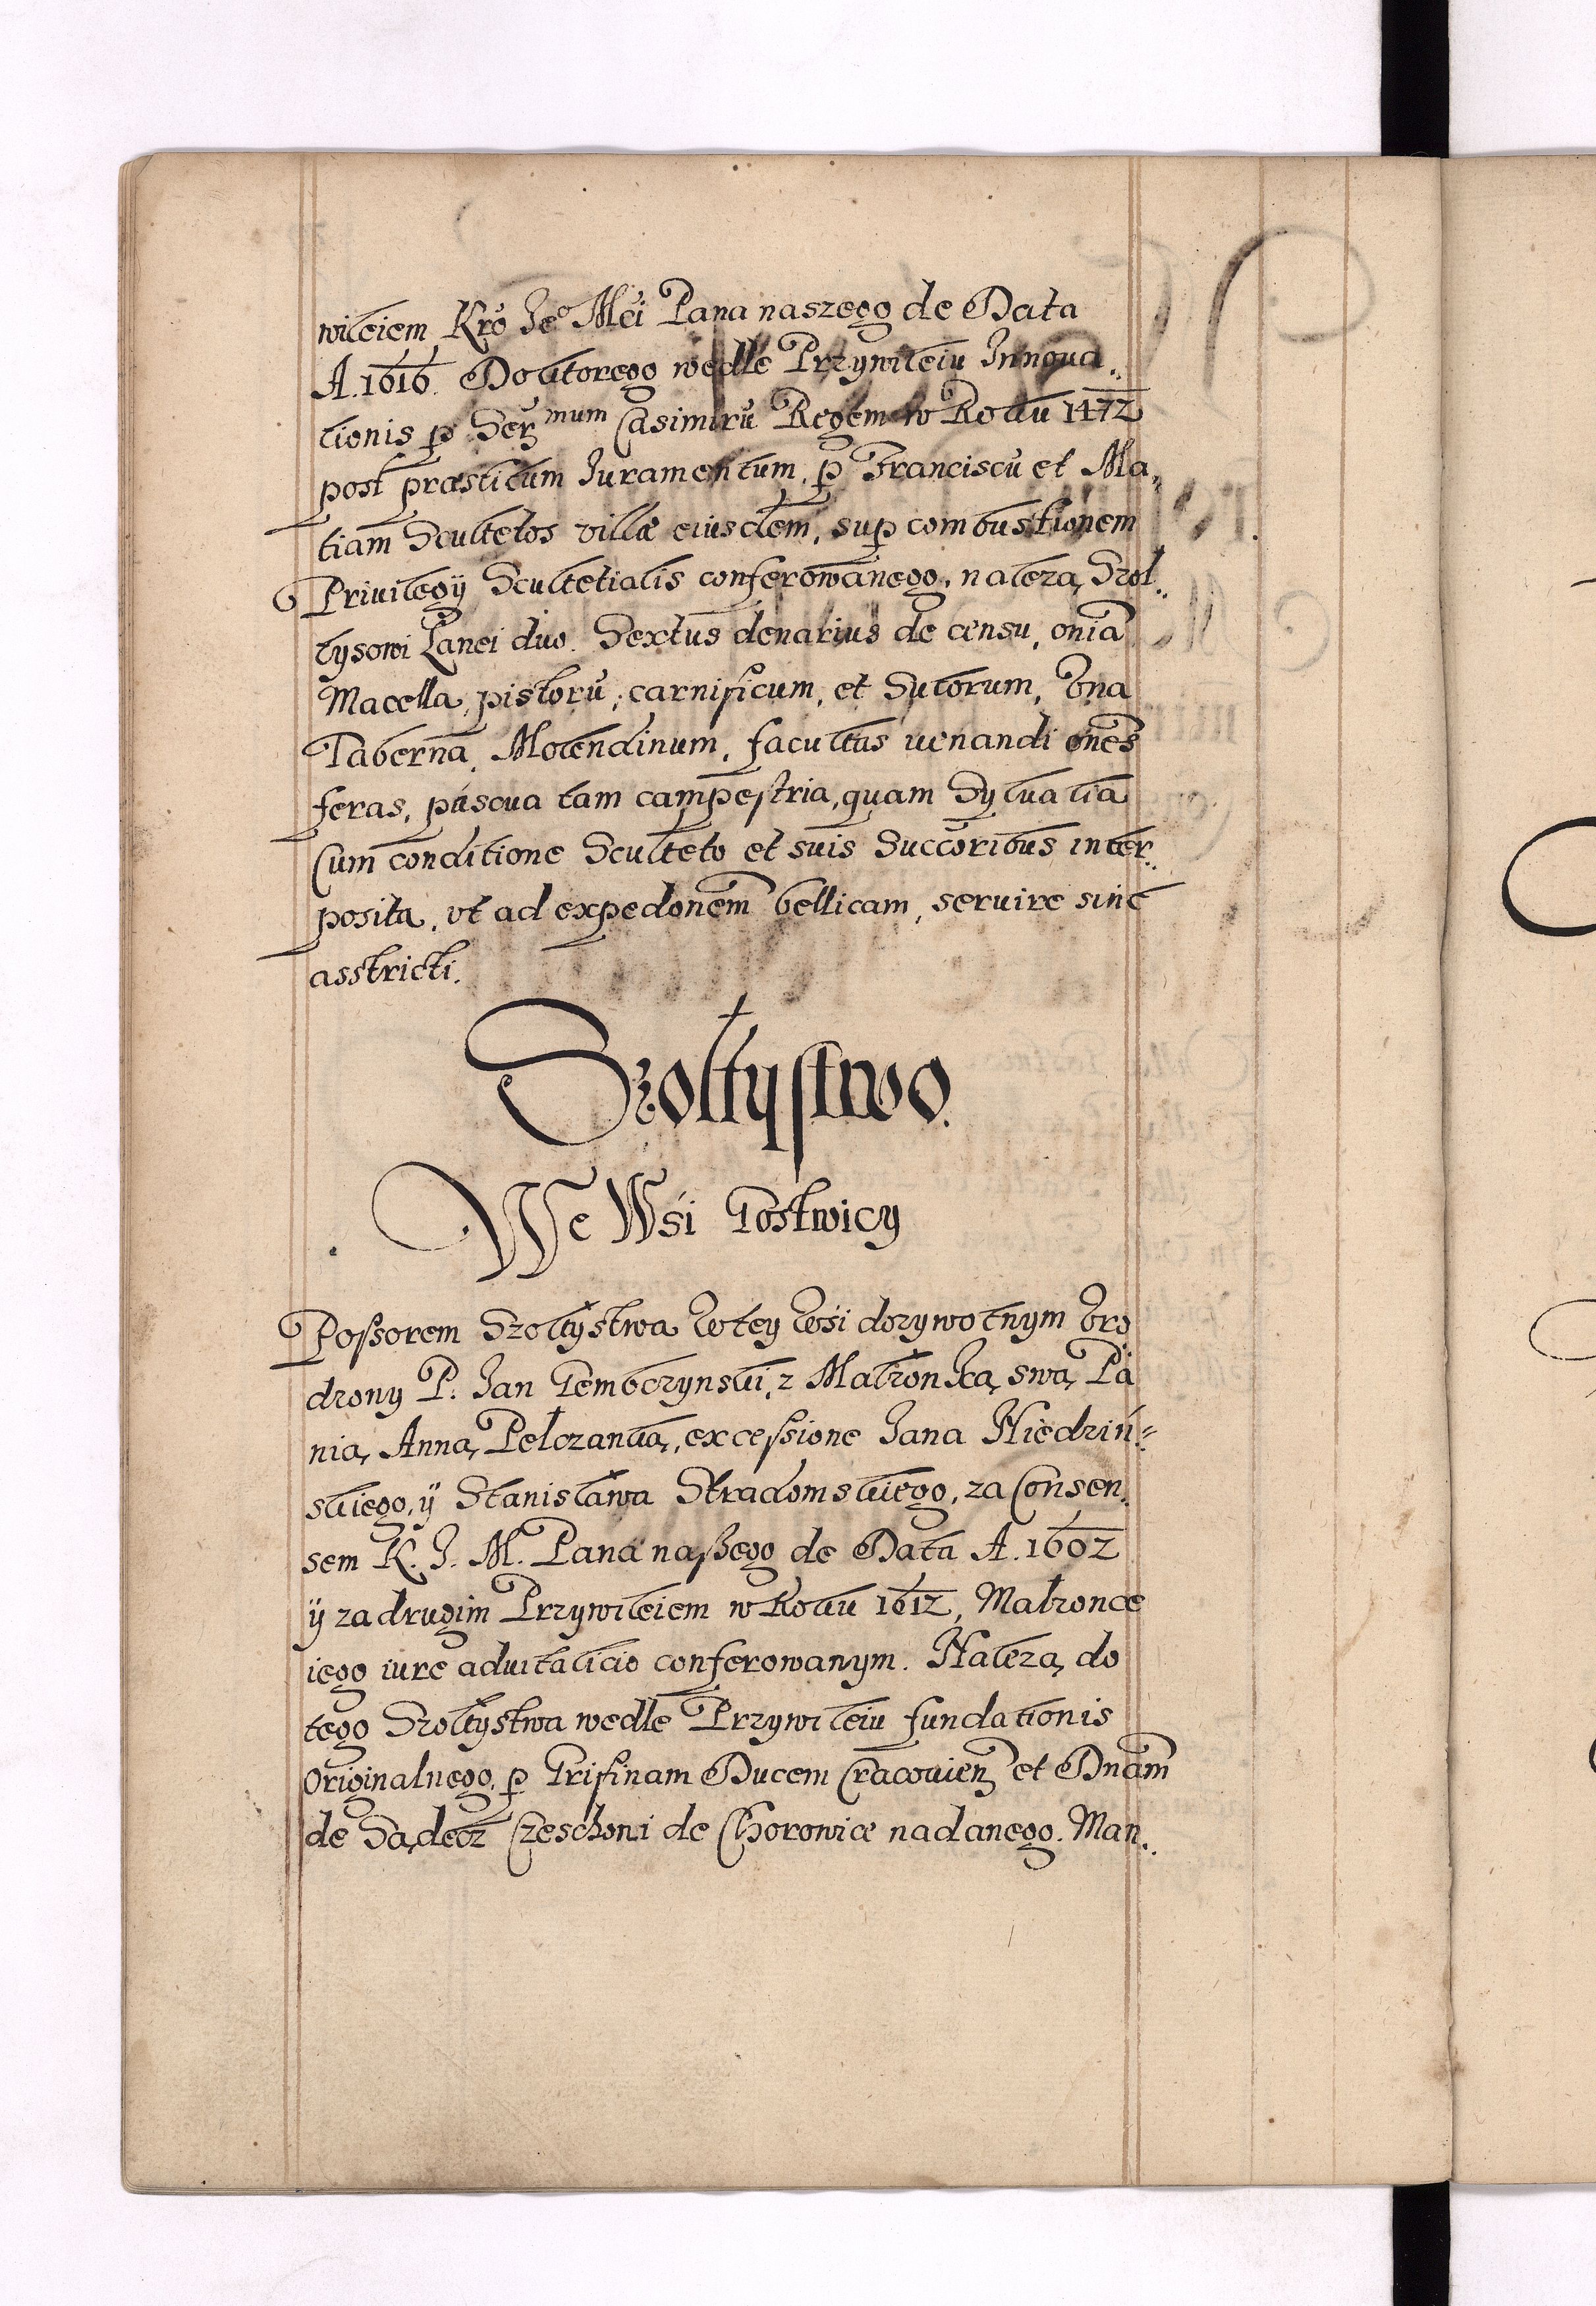 wileiem Kro Je° Mci Pana naszego de Data
A. 1616. Do ktorego wedle Przywileiu Innoua„
tionis p Ser mum Casimirū Regem w Roku 1472
post præstitum Iuramentum, p Franciscū et Ma„
tiam Scultetos villæ eiusdem, sup combustionem
Priuilegÿ Scultetialis conferowanego, należą Szoł„
tysowi Łanei duo. Sextus denarius de censu, oniā
Macella, pistorū, carnificum, et Sutorum, Vna
Taberna, Molendinum, facultas uenandi onēs
feras, páscua tam campestria, quam Syluatia
Cum conditione Sculteto et suis Succoribus inter„
posita, vt ad expedonem bellicam, seruire sint
asstricti.
Szołtystwo.
We Wśi Gostwicy
Poßorem Szołtystwa w tey wśi dożywotnym Vro
dzony P. Jan Gembczynski, z Małżonką swą Pa
nią Anną Pełczanką, ex ceßione Jana Niedziń„
skiego, ÿ Stanisława Stradomskiego, za Consen„
sem K. J. M. Pana naßego de Data A. 1602
ÿ za drugim Przywileiem w Roku 1612, Małżonce
iego iure aduitalicio conferowanym. Należą do
tego Szołtystwa wedle Przywileiu fundationis
Originalnego, p Grifinam Ducem Cracouien et Dnam
de Sądecz Czeschoni de Chorowice nadanego. Man„